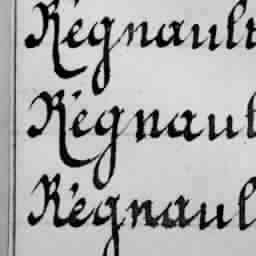 Régnault
Régnaul
Régnaul